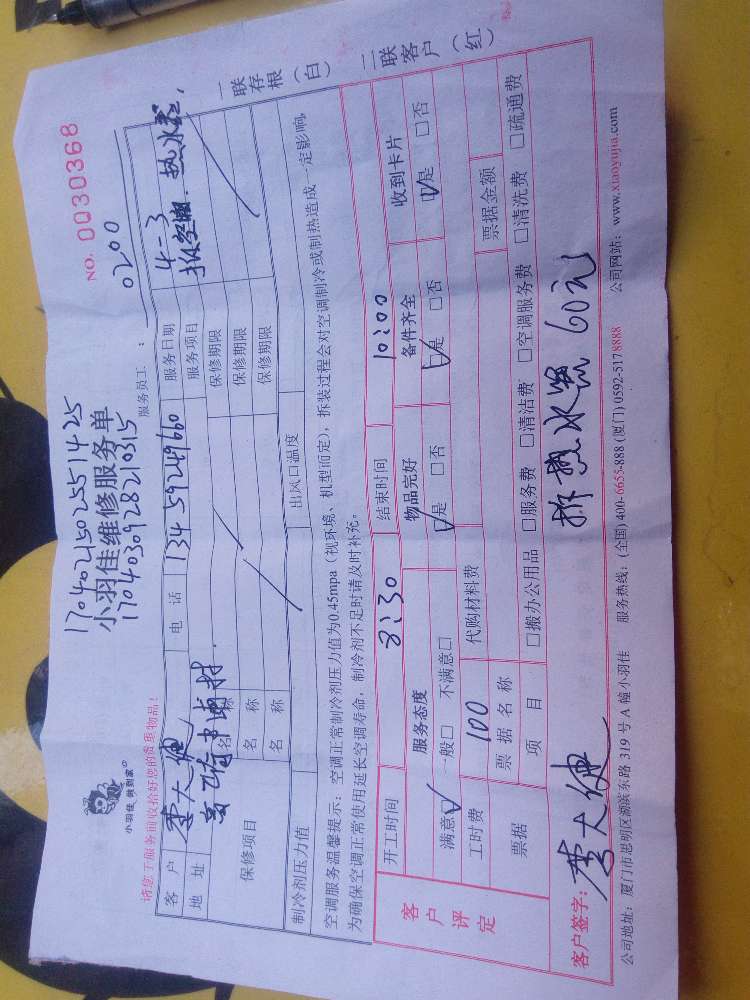 小羽佳 做到家®
1704021502551425
小羽佳维修服务单
1704030928210315
NO. 0030368
请您于服务前收拾好您的贵重物品!
服务员工 : 0200
客户 李大健 电话 13459249660 服务日期 4-3
地址 服务项目 拆空调.热水器.
保修项目
名称 保修期限
名称 保修期限
名称 保修期限
制冷剂压力值 出风口温度
空调服务温馨提示:空调正常制冷剂压力值为0.45mpa(视环境、机型而定),拆装过程会对空调制冷或制热造成一定影响,
为确保空调正常使用延长空调寿命,制冷剂不足时请及时补充。
一联存根(白)
二联客户(红)
客户评定
开工时间 8:30 结束时间 10:00
服务态度 物品完好 备件齐全 收到卡片
满意☑ 一般□ 不满意□ ☑是 □否 ☑是 □否 ☑是 □否
工时费 100 代购材料费
票据 票据名称 票据金额
项目 □搬办公用品 □服务费 □清洁费 □空调服务费 □清洗费 □疏通费
客户签字: 李大健 拆热水器60元
公司地址:厦门市思明区湖滨东路319号A幢小羽佳 服务热线:(全国)400-6655-888 (厦门)0592-5178888 公司网站:www.xiaoyujia.com